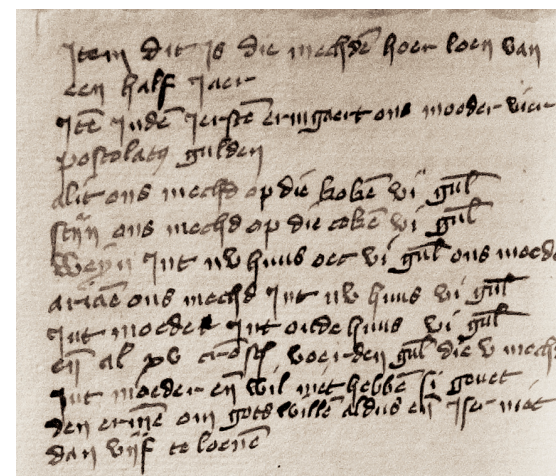 Item dit is die mechdē hoer loen van
een half jaer
Itē indē iersтē ermgaert ons moeder vier
postolat9 gulden
alit ons mechd op die kokē vi gul̄
stijn ons mechd op die cokē vi gul̄
Weyn int nv huus oec vi gul̄ ons moed
ariaē ons mechd int nv huus vi gul̄
int moeder int oude huus vi gul̄
eñ al xv voer den gul̄ die v mech
int moeder eñ wil niet hebbē si gevet
den ermē om gots willē aldus eñ iser niet
dan vijf te loenē